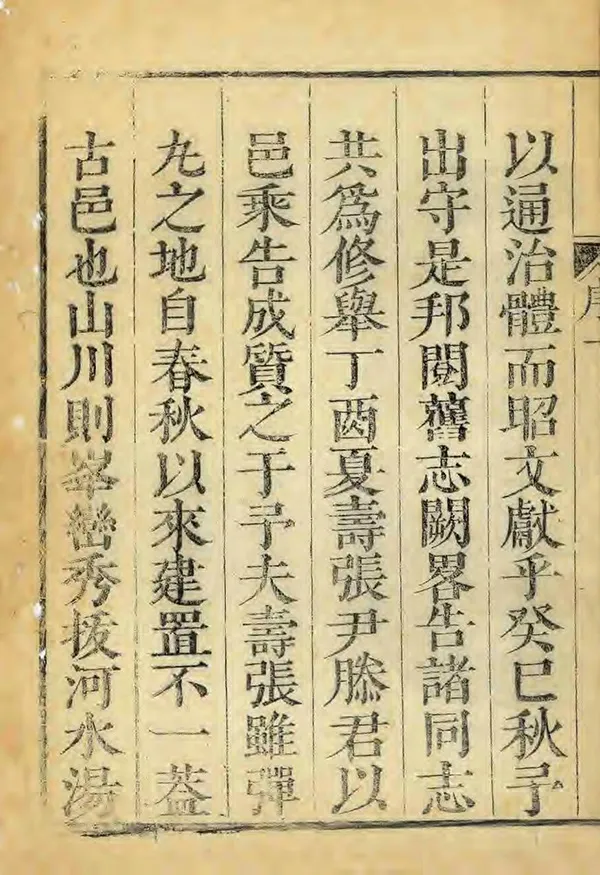 以通治體而昭文獻乎癸巳秋予
出守是邦閱舊志闕畧告諸同志
共爲修舉丁酉夏壽張尹滕君以
邑乘告成質之于予夫壽張雖彈
丸之地自春秋以來建置不一葢
古邑也山川則峯巒秀拔河水湯
序